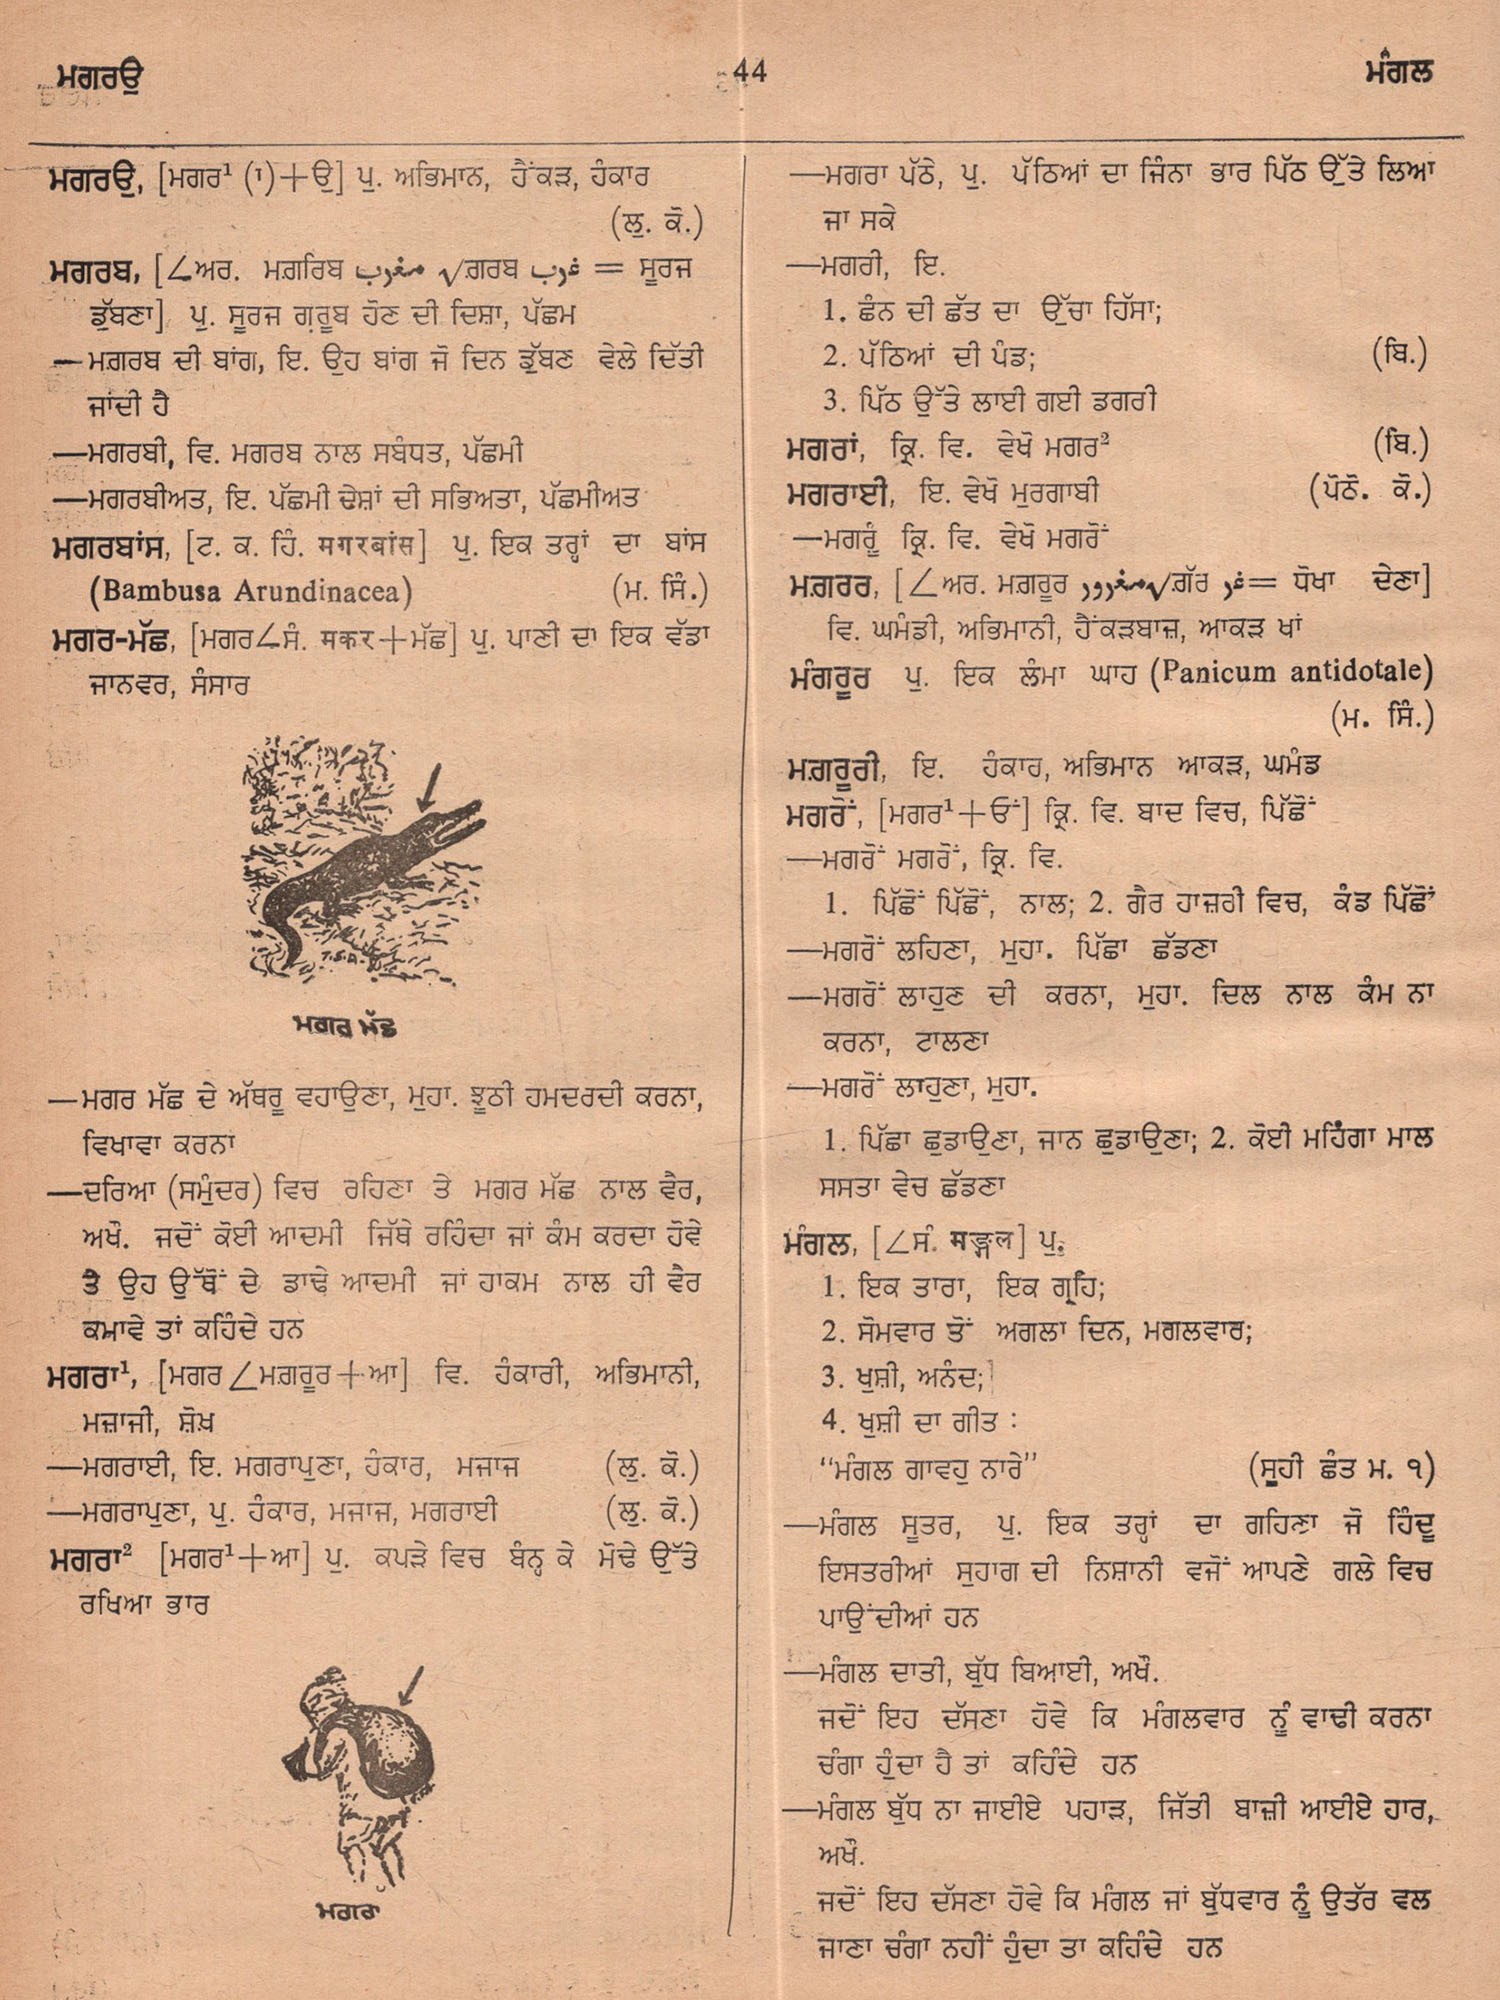 ਮਗਰਉ
44
ਮੰਗਲ
ਮਗਰਉ, [ਮਗਰ¹ (1)+ਉ] ਪੁ. ਅਭਿਮਾਨ, ਹੈਂਕੜ, ਹੰਕਾਰ
(ਲੁ. ਕੋ.)
ਮਗਰਬ, [∠ਅਰ. ਮਗ਼ਰਿਬ مغرب √ਗ਼ਰਬ غرب = ਸੂਰਜ
ਡੁੱਬਣਾ] ਪੁ. ਸੂਰਜ ਗ਼ਰੂਬ ਹੋਣ ਦੀ ਦਿਸ਼ਾ, ਪੱਛਮ
—ਮਗ਼ਰਬ ਦੀ ਬਾਂਗ, ਇ. ਉਹ ਬਾਂਗ ਜੋ ਦਿਨ ਡੁੱਬਣ ਵੇਲੇ ਦਿੱਤੀ
ਜਾਂਦੀ ਹੈ
—ਮਗਰਬੀ, ਵਿ. ਮਗਰਬ ਨਾਲ ਸਬੰਧਤ, ਪੱਛਮੀ
—ਮਗਰਬੀਅਤ, ਇ. ਪੱਛਮੀ ਦੇਸ਼ਾਂ ਦੀ ਸਭਿਅਤਾ, ਪੱਛਮੀਅਤ
ਮਗਰਬਾਂਸ, [ਟ. ਕ. ਹਿੰ. मगरबांस] ਪੁ. ਇਕ ਤਰ੍ਹਾਂ ਦਾ ਬਾਂਸ
(Bambusa Arundinacea) (ਮ. ਸਿੰ.)
ਮਗਰ-ਮੱਛ, [ਮਗਰ∠ਸੰ. मकर+ਮੱਛ] ਪੁ. ਪਾਣੀ ਦਾ ਇਕ ਵੱਡਾ
ਜਾਨਵਰ, ਸੰਸਾਰ
ਮਗਰ ਮੱਛ
—ਮਗਰ ਮੱਛ ਦੇ ਅੱਥਰੂ ਵਹਾਉਣਾ, ਮੁਹਾ. ਝੂਠੀ ਹਮਦਰਦੀ ਕਰਨਾ,
ਵਿਖਾਵਾ ਕਰਨਾ
—ਦਰਿਆ (ਸਮੁੰਦਰ) ਵਿਚ ਰਹਿਣਾ ਤੇ ਮਗਰ ਮੱਛ ਨਾਲ ਵੈਰ,
ਅਖੌ. ਜਦੋਂ ਕੋਈ ਆਦਮੀ ਜਿੱਥੇ ਰਹਿੰਦਾ ਜਾਂ ਕੰਮ ਕਰਦਾ ਹੋਵੇ
ਤੇ ਉਹ ਉੱਥੋਂ ਦੇ ਡਾਢੇ ਆਦਮੀ ਜਾਂ ਹਾਕਮ ਨਾਲ ਹੀ ਵੈਰ
ਕਮਾਵੇ ਤਾਂ ਕਹਿੰਦੇ ਹਨ
ਮਗਰਾ¹, [ਮਗਰ ∠ਮਗ਼ਰੂਰ+ਆ] ਵਿ. ਹੰਕਾਰੀ, ਅਭਿਮਾਨੀ,
ਮਜ਼ਾਜੀ, ਸ਼ੋਖ਼
—ਮਗਰਾਈ, ਇ. ਮਗਰਾਪੁਣਾ, ਹੰਕਾਰ, ਮਜਾਜ (ਲੁ. ਕੋ.)
—ਮਗਰਾਪੁਣਾ, ਪੁ. ਹੰਕਾਰ, ਮਜਾਜ, ਮਗਰਾਈ (ਲੁ. ਕੋ.)
ਮਗਰਾ² [ਮਗਰ¹+ਆ] ਪੁ. ਕਪੜੇ ਵਿਚ ਬੰਨ੍ਹ ਕੇ ਮੋਢੇ ਉੱਤੇ
ਰਖਿਆ ਭਾਰ
ਮਗਰਾ
—ਮਗਰਾ ਪੱਠੇ, ਪੁ. ਪੱਠਿਆਂ ਦਾ ਜਿੰਨਾ ਭਾਰ ਪਿੱਠ ਉੱਤੇ ਲਿਆ
ਜਾ ਸਕੇ
—ਮਗਰੀ, ਇ.
1. ਛੰਨ ਦੀ ਛੱਤ ਦਾ ਉੱਚਾ ਹਿੱਸਾ;
2. ਪੱਠਿਆਂ ਦੀ ਪੰਡ; (ਬਿ.)
3. ਪਿੱਠ ਉੱਤੇ ਲਾਈ ਗਈ ਡਗਰੀ
ਮਗਰਾਂ, ਕ੍ਰਿ. ਵਿ. ਵੇਖੋ ਮਗਰ² (ਬਿ.)
ਮਗਰਾਈ, ਇ. ਵੇਖੋ ਮੁਰਗਾਬੀ (ਪੋਠੋ. ਕੋ.)
—ਮਗਰੂੰ ਕ੍ਰਿ. ਵਿ. ਵੇਖੋ ਮਗਰੋਂ
ਮਗ਼ਰਰ, [∠ਅਰ. ਮਗ਼ਰੂਰ مغرور√ਗ਼ੱਰ غر= ਧੋਖਾ ਦੇਣਾ]
ਵਿ. ਘਮੰਡੀ, ਅਭਿਮਾਨੀ, ਹੈਂਕੜਬਾਜ਼, ਆਕੜ ਖਾਂ
ਮੰਗਰੂਰ ਪੁ. ਇਕ ਲੰਮਾ ਘਾਹ (Panicum antidotale)
(ਮ. ਸਿੰ.)
ਮਗ਼ਰੂਰੀ, ਇ. ਹੰਕਾਰ, ਅਭਿਮਾਨ ਆਕੜ, ਘਮੰਡ
ਮਗਰੋਂ, [ਮਗਰ¹+ਓਂ] ਕ੍ਰਿ. ਵਿ. ਬਾਦ ਵਿਚ, ਪਿੱਛੋਂ
—ਮਗਰੋਂ ਮਗਰੋਂ, ਕ੍ਰਿ. ਵਿ.
1. ਪਿੱਛੋਂ ਪਿੱਛੋਂ, ਨਾਲ; 2. ਗੈਰ ਹਾਜ਼ਰੀ ਵਿਚ, ਕੰਡ ਪਿੱਛੋਂ
—ਮਗਰੋਂ ਲਹਿਣਾ, ਮੁਹਾ. ਪਿੱਛਾ ਛੱਡਣਾ
—ਮਗਰੋਂ ਲਾਹੁਣ ਦੀ ਕਰਨਾ, ਮੁਹਾ. ਦਿਲ ਨਾਲ ਕੰਮ ਨਾ
ਕਰਨਾ, ਟਾਲਣਾ
—ਮਗਰੋਂ ਲਾਹੁਣਾ, ਮੁਹਾ.
1. ਪਿੱਛਾ ਛੁਡਾਉਣਾ, ਜਾਨ ਛੁਡਾਉਣਾ; 2. ਕੋਈ ਮਹਿੰਗਾ ਮਾਲ
ਸਸਤਾ ਵੇਚ ਛੱਡਣਾ
ਮੰਗਲ, [∠ਸੰ. मङ्गल] ਪੁ.
1. ਇਕ ਤਾਰਾ, ਇਕ ਗ੍ਰਹਿ;
2. ਸੋਮਵਾਰ ਤੋਂ ਅਗਲਾ ਦਿਨ, ਮਗਲਵਾਰ;
3. ਖੁਸ਼ੀ, ਅਨੰਦ;
4. ਖੁਸ਼ੀ ਦਾ ਗੀਤ :
“ਮੰਗਲ ਗਾਵਹੁ ਨਾਰੇ” (ਸੂਹੀ ਛੰਤ ਮ. ੧)
—ਮੰਗਲ ਸੂਤਰ, ਪੁ. ਇਕ ਤਰ੍ਹਾਂ ਦਾ ਗਹਿਣਾ ਜੋ ਹਿੰਦੂ
ਇਸਤਰੀਆਂ ਸੁਹਾਗ ਦੀ ਨਿਸ਼ਾਨੀ ਵਜੋਂ ਆਪਣੇ ਗਲੇ ਵਿਚ
ਪਾਉਂਦੀਆਂ ਹਨ
—ਮੰਗਲ ਦਾਤੀ, ਬੁੱਧ ਬਿਆਈ, ਅਖੌ.
ਜਦੋਂ ਇਹ ਦੱਸਣਾ ਹੋਵੇ ਕਿ ਮੰਗਲਵਾਰ ਨੂੰ ਵਾਢੀ ਕਰਨਾ
ਚੰਗਾ ਹੁੰਦਾ ਹੈ ਤਾਂ ਕਹਿੰਦੇ ਹਨ
—ਮੰਗਲ ਬੁੱਧ ਨਾ ਜਾਈਏ ਪਹਾੜ, ਜਿੱਤੀ ਬਾਜ਼ੀ ਆਈਏ ਹਾਰ,
ਅਖੌ.
ਜਦੋਂ ਇਹ ਦੱਸਣਾ ਹੋਵੇ ਕਿ ਮੰਗਲ ਜਾਂ ਬੁੱਧਵਾਰ ਨੂੰ ਉਤੱਰ ਵਲ
ਜਾਣਾ ਚੰਗਾ ਨਹੀਂ ਹੁੰਦਾ ਤਾ ਕਹਿੰਦੇ ਹਨ